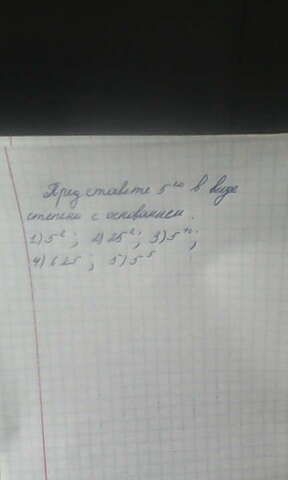 Представьте 5²⁰ в виде
степени с основанием.
1) 5²; 2) 25²; 3) 5⁴;
4) 625; 5) 5⁵